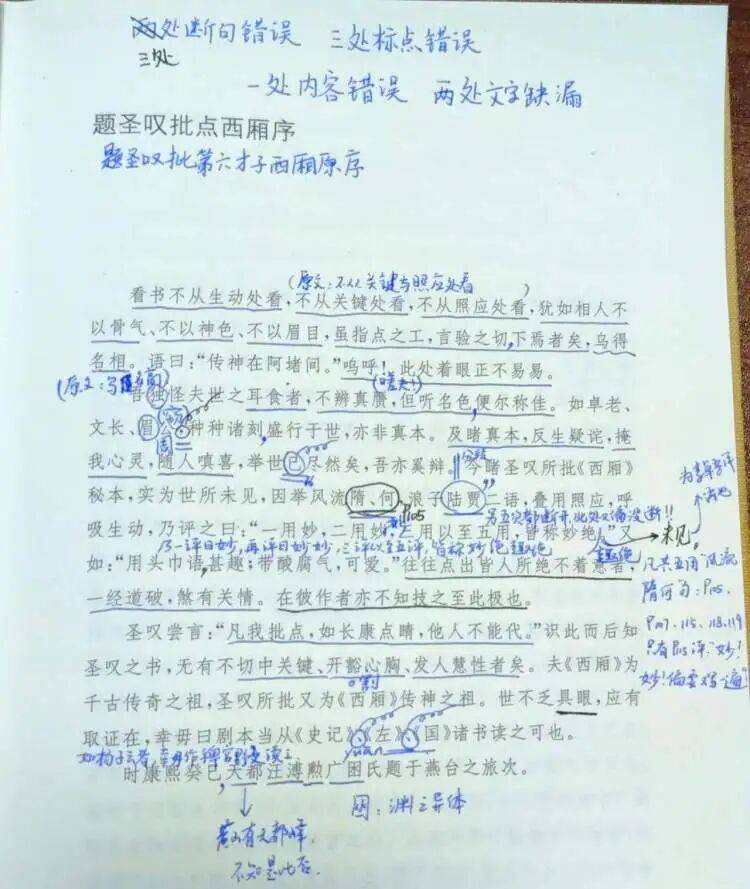 两处断句错误 三处标点错误
三处
一处内容错误 两处文字缺漏
题圣叹批点西厢序
题圣叹批第六才子西厢原序
(原文:不从关键与照应处看)
看书不从生动处看,不从关键处看,不从照应处看,犹如相人不
以骨气、不以神色、不以眉目,虽指点之工,言验之切,下焉者矣,乌得
名相。语曰:“传神在阿堵间。”呜呼!此处着眼正不易易。
(嗟夫!)
吾独怪夫世之耳食者,不辨真赝,但听名色,便尔称佳。如卓老、
文长、眉公种种诸刻,盛行于世,亦非真本。及睹真本,反生疑诧,掩
我心灵,随人嗔喜,举世已尽然矣,吾亦奚辩。今睹圣叹所批《西厢》
秘本,实为世所未见,因举风流隋、何,浪子陆贾二语,叠用照应,呼
P105
吸生动,乃评之曰:“一用妙,二用妙,三用以至五用,皆称妙绝”,又
如:“用头巾语,甚趣;带酸腐气,可爱。”往往点出皆人所绝不着意者,
一经道破,煞有关情。在彼作者亦不知技之至此极也。
未见
隋何句:P105.
P107、115、118、119
圣叹尝言:“凡我批点,如长康点睛,他人不能代。”识此而后知
圣叹之书,无有不切中关键、开豁心胸、发人慧性者矣。夫《西厢》为
千古传奇之祖,圣叹所批又为《西厢》传神之祖。世不乏具眼,应有
取证在,幸毋曰剧本当从《史记》《左》《国》诸书读之可也。
时康熙癸巳天都汪溥勲广囦氏题于燕台之旅次。
囦:渊之异体
黄山有天都峰
不知是此否.